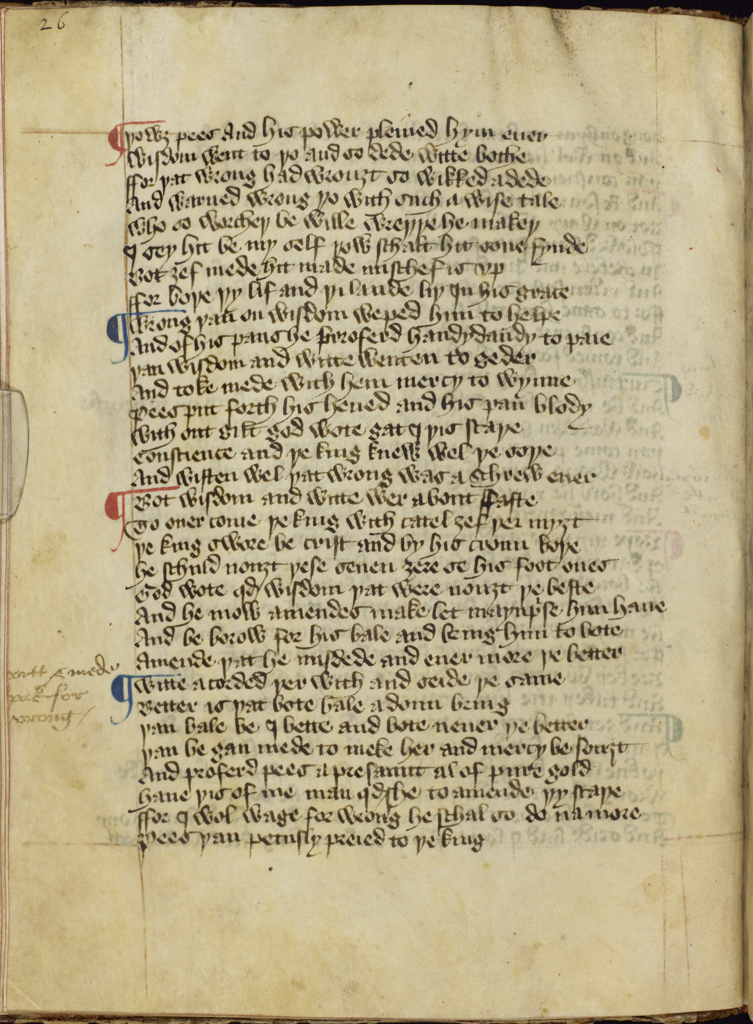 26
yowz pees and his power pleined hym euer
wisdom went to yo and so dede witte bothe
ffor yat wrong had wrouzt so wikked a dede
And warned wrong yo with such a wise tale
who so worchey be wille wreyye he makey
I sey hit be my self yow schalt hit sone fynde
Bot zef mede hit made mischef is vp
ffor boye yy lif and yi lande liy in his grace
wrong yan on wisdom weped him to helpe
And of his pans he proferd handydandy to paie
yan wisdom and witte wenten to geder
And toke mede with hem mercy to wynne
Pees put forth his heued and his pan blody
with out gilt god wote gat I yis skaye
Conscience and ye king knew wel ye soye
And wisten wel yat wrong was a schrew euer
Bot wisdom and witte wer about faste
To ouer come ye king with catel zef yei myzt
ye king swore be crist and by his croun boye
he schuld nouzt yese seuen zere se his foot ones
God wote qd wisdom yat were nouzt ye beste
And he mow amendes make let maynpse him haue
And be borow for his bale and bring him to bote
Amende yat he misdede and euer more ye better
witte acorded yer with and seide ye same
Better is yat bote bale adoun bring
yan bale be I bette and bote neuer ye better
yan be gan mede to meke her and mercy be souzt
And proferd pees a presaunt al of pure gold
haue yis of me man qd she to amende yy skaye
ffor I wol wage for wrong he schal so do na more
Pees yan petusly preied to ye king
witt & mede
for
wrong